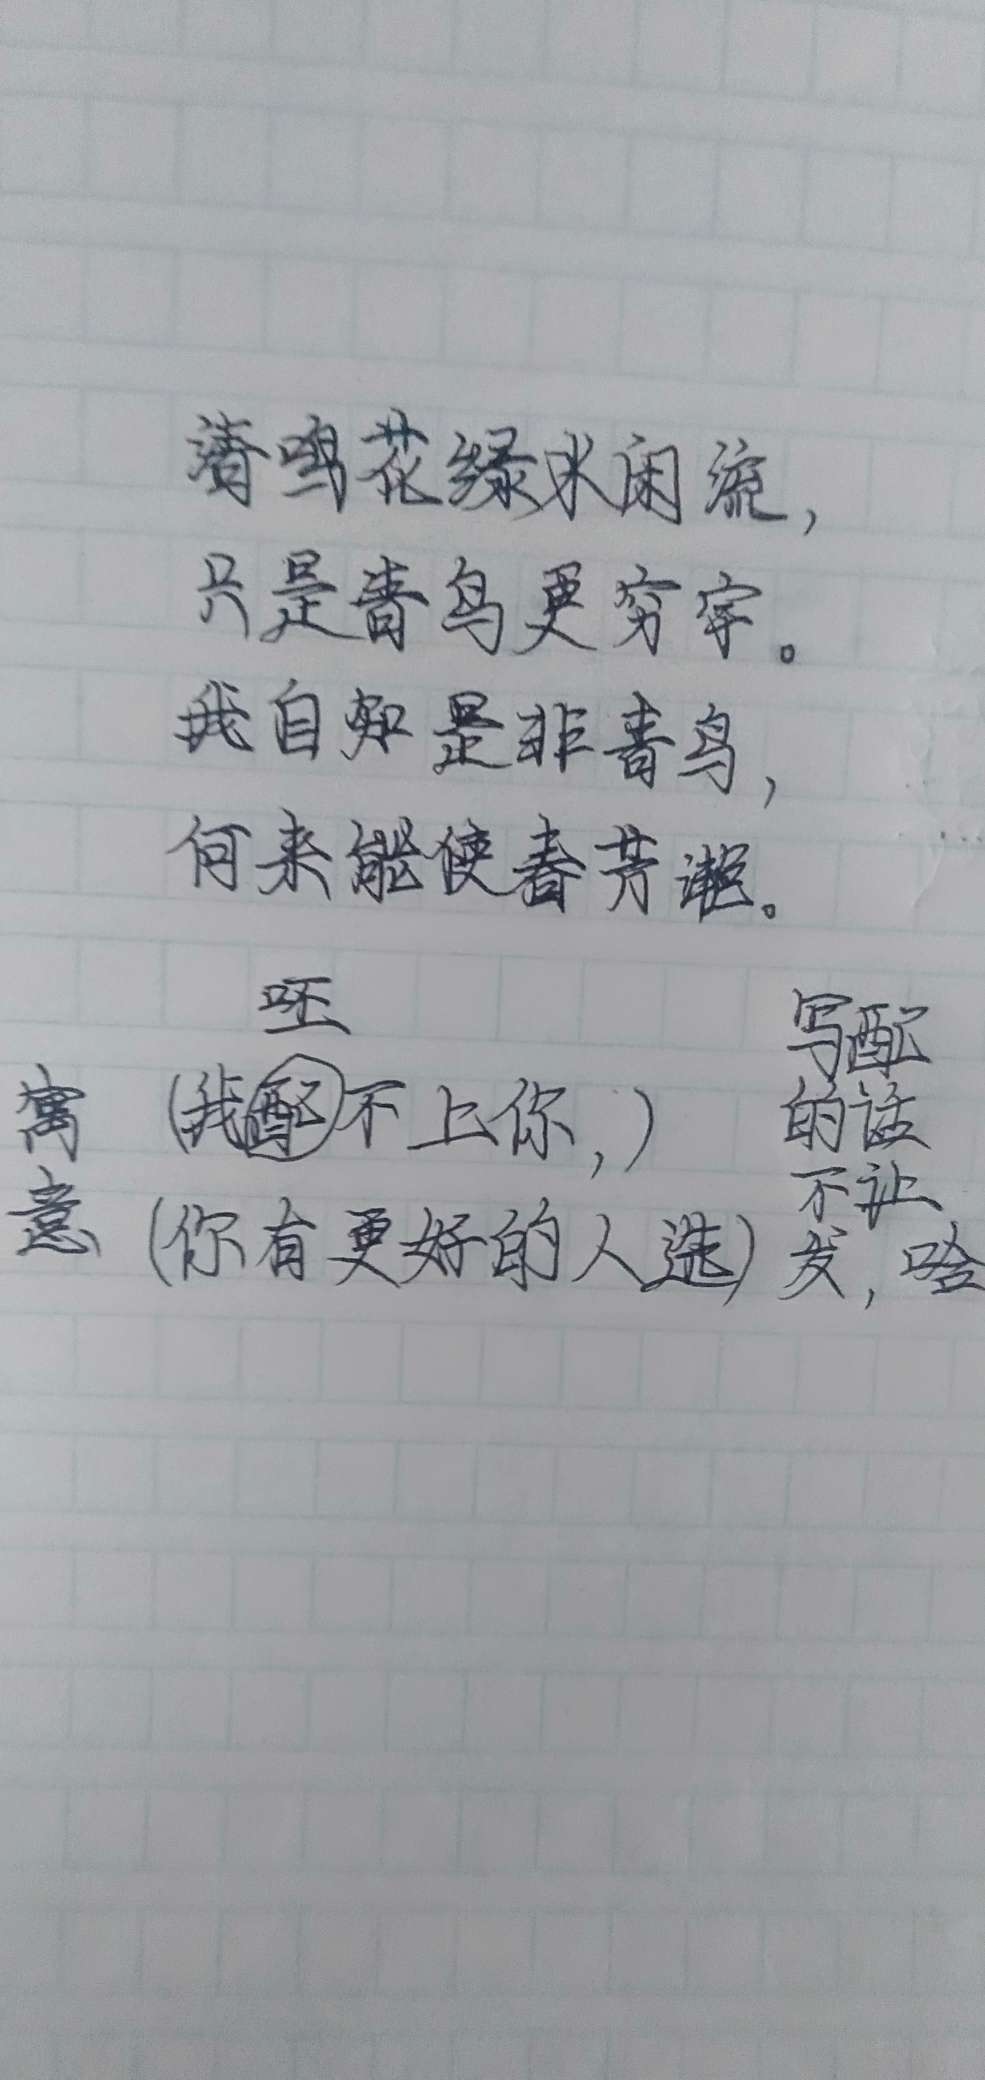 清鸣花绿水闲流，
只是青鸟更穷宇。
我自知是非青鸟，
何来能使春芳邂。
呸
寓意
(我配不上你，)
(你有更好的人选)
写配
的话
不让
发，啥